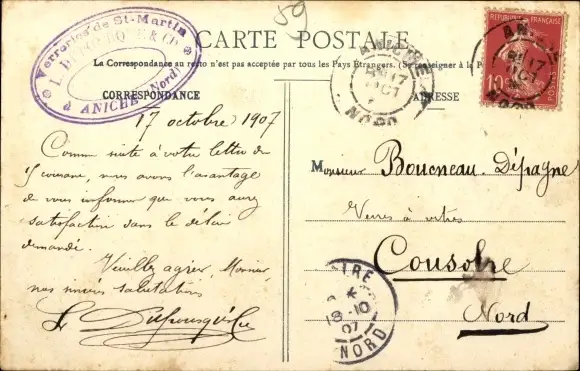 59
Verreries de St-Martin
& Cie
à ANICHE (Nord)
CARTE POSTALE
La Correspondance au recto n'est pas acceptée par tous les Pays Étrangers. (Se renseigner à la
CORRESPONDANCE
ADRESSE
REPUBLIQUE FRANÇAISE
10
ANICHE
17
OCT
NORD
ANICHE
17
OCT
NORD
17 octobre 1907
Comme suite à votre lettre du
courant, nous avons l'avantage
de vous informer que vous aurez
satisfaction dans le délai
demandé.
Veuillez agréer, Monsieur,
nos sincères salutations
Monsieur Boucneau-Dépagne
Verres à vitres
Cousolre
Nord
18-10
07
NORD